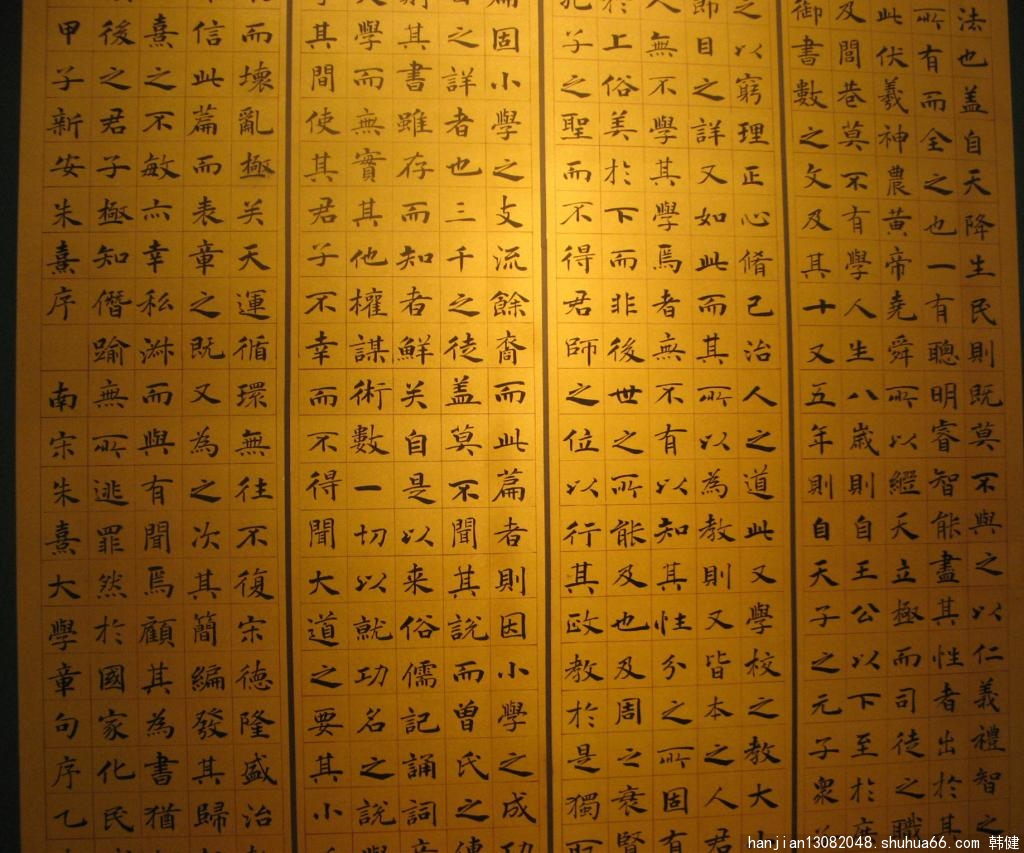 法也盖自天降生民則既莫不與之以仁義禮智之
所有而全之也一有聰明睿智能盡其性者出於其
此伏羲神農黃帝堯舜所以繼天立極而司徒之職
及閭巷莫不有學人生八歲則自王公以下至於庶
御書數之文及其十又五年則自天子之元子衆
之以窮理正心脩己治人之道此又學校之教大
節目之詳又如此而其所以為教則又皆本之人君
人無不學其學焉者無不有以知其性分之所固有
於上俗美於下而非後世之所能及也及周之衰賢
孔子之聖而不得君師之位以行其政教於是獨
篇固小學之支流餘裔而此篇者則因小學之成功
之詳者也三千之徒盖莫不聞其說而曽氏之
其書雖存而知者鮮矣自是以来俗儒記誦詞
學而無實其他權謀術數一切以就功名之說
其間使其君子不幸而不得聞大道之要其小
而壞亂極矣天運循環無往不復宋德隆盛治
信此篇而表章之既又為之次其簡編發其歸
熹之不敏亦幸私淑而與有聞焉顧其為書猶
後之君子極知僭踰無所逃罪然於國家化民
甲子新安朱熹序 南宋朱熹大學章句序乙
hanjian13082048.shuhua66.com 韩健